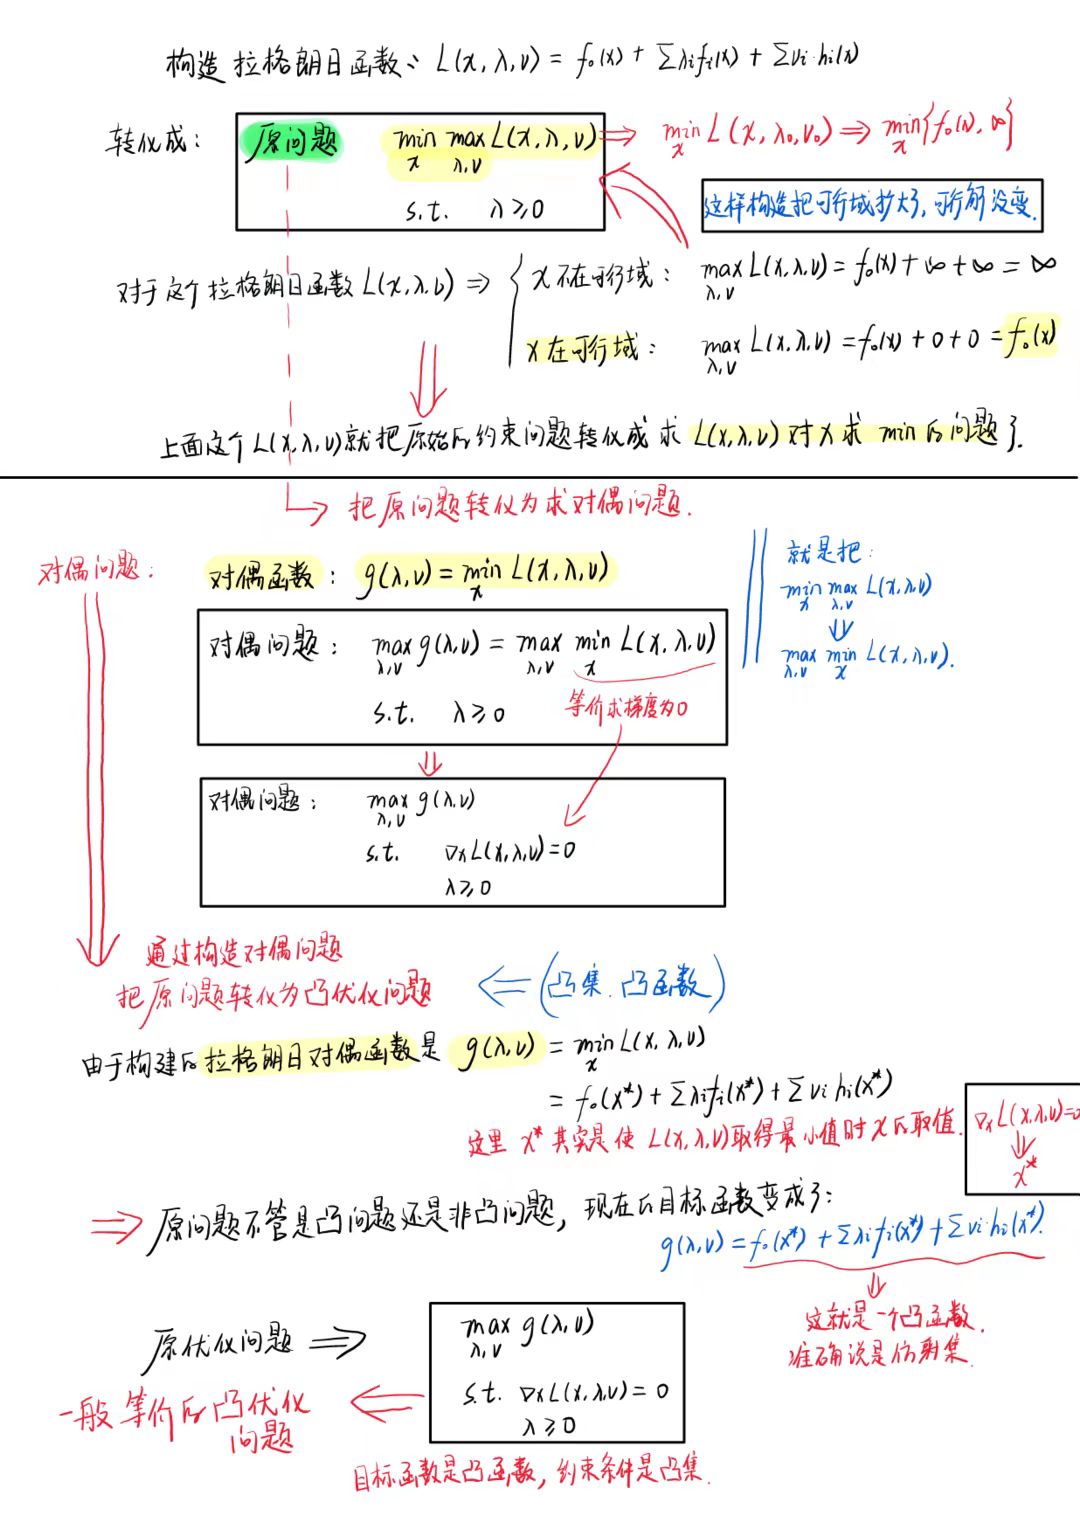 构造拉格朗日函数: L(x,λ,ν) = f₀(x) + Σλifi(x) + Σνi·hi(x)
转化成: 原问题 min max L(x,λ,ν) ⇒ min L(x,λ₀,ν₀) ⇒ min{f₀(x),∞}
x λ,ν x x
s.t. λ≥0
这样构造把可行域扩大了,可行解没变.
对于这个拉格朗日函数L(x,λ,ν) ⇒ { x不在可行域: max L(x,λ,ν) = f₀(x) + ∞ + ∞ = ∞
λ,ν
x在可行域: max L(x,λ,ν) = f₀(x) + 0 + 0 = f₀(x)
λ,ν
上面这个L(x,λ,ν)就把原始的约束问题转化成求L(x,λ,ν)对x求min的问题了.
把原问题转化为求对偶问题.
对偶问题: 对偶函数: g(λ,ν) = min L(x,λ,ν)
x
就是把:
min max L(x,λ,ν)
x λ,ν
⇓
max min L(x,λ,ν).
λ,ν x
对偶问题: max g(λ,ν) = max min L(x,λ,ν)
λ,ν λ,ν x
s.t. λ≥0 等价求梯度为0
⇓
对偶问题: max g(λ,ν)
λ,ν
s.t. ∇xL(x,λ,ν)=0
λ≥0
通过构造对偶问题
把原问题转化为凸优化问题 ⇐ (凸集.凸函数)
由于构建的拉格朗日对偶函数是 g(λ,ν) = min L(x,λ,ν)
x
= f₀(x*) + Σλifi(x*) + Σνi hi(x*)
这里x*其实是使L(x,λ,ν)取得最小值时x的取值.
∇xL(x,λ,ν)=0
⇓
x*
⇒ 原问题不管是凸问题还是非凸问题, 现在的目标函数变成了:
g(λ,ν) = f₀(x*) + Σλifi(x*) + Σνi·hi(x*).
⇓
这就是一个凸函数.
准确说是仿射集.
原优化问题 ⇒ max g(λ,ν)
λ,ν
s.t. ∇xL(x,λ,ν) = 0
λ≥0
一般等价的凸优化
问题
目标函数是凸函数, 约束条件是凸集.